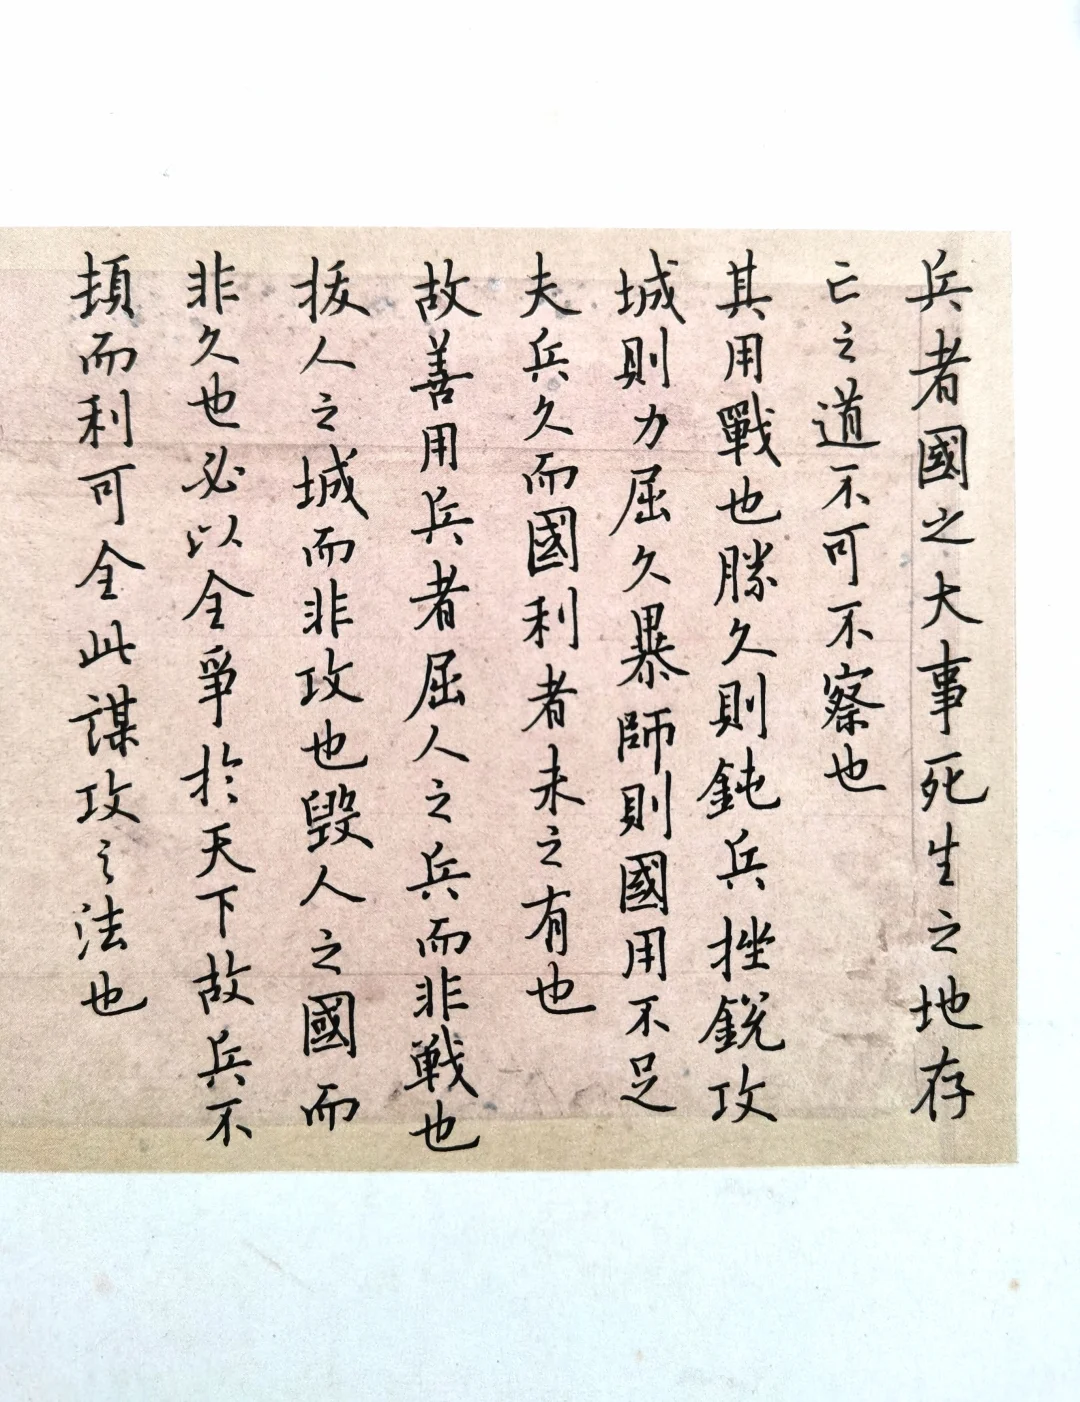 兵者國之大事死生之地存
亡之道不可不察也
其用戰也勝久則鈍兵挫銳攻
城則力屈久暴師則國用不足
夫兵久而國利者未之有也
故善用兵者屈人之兵而非戰也
拔人之城而非攻也毀人之國而
非久也必以全爭於天下故兵不
頓而利可全此謀攻之法也